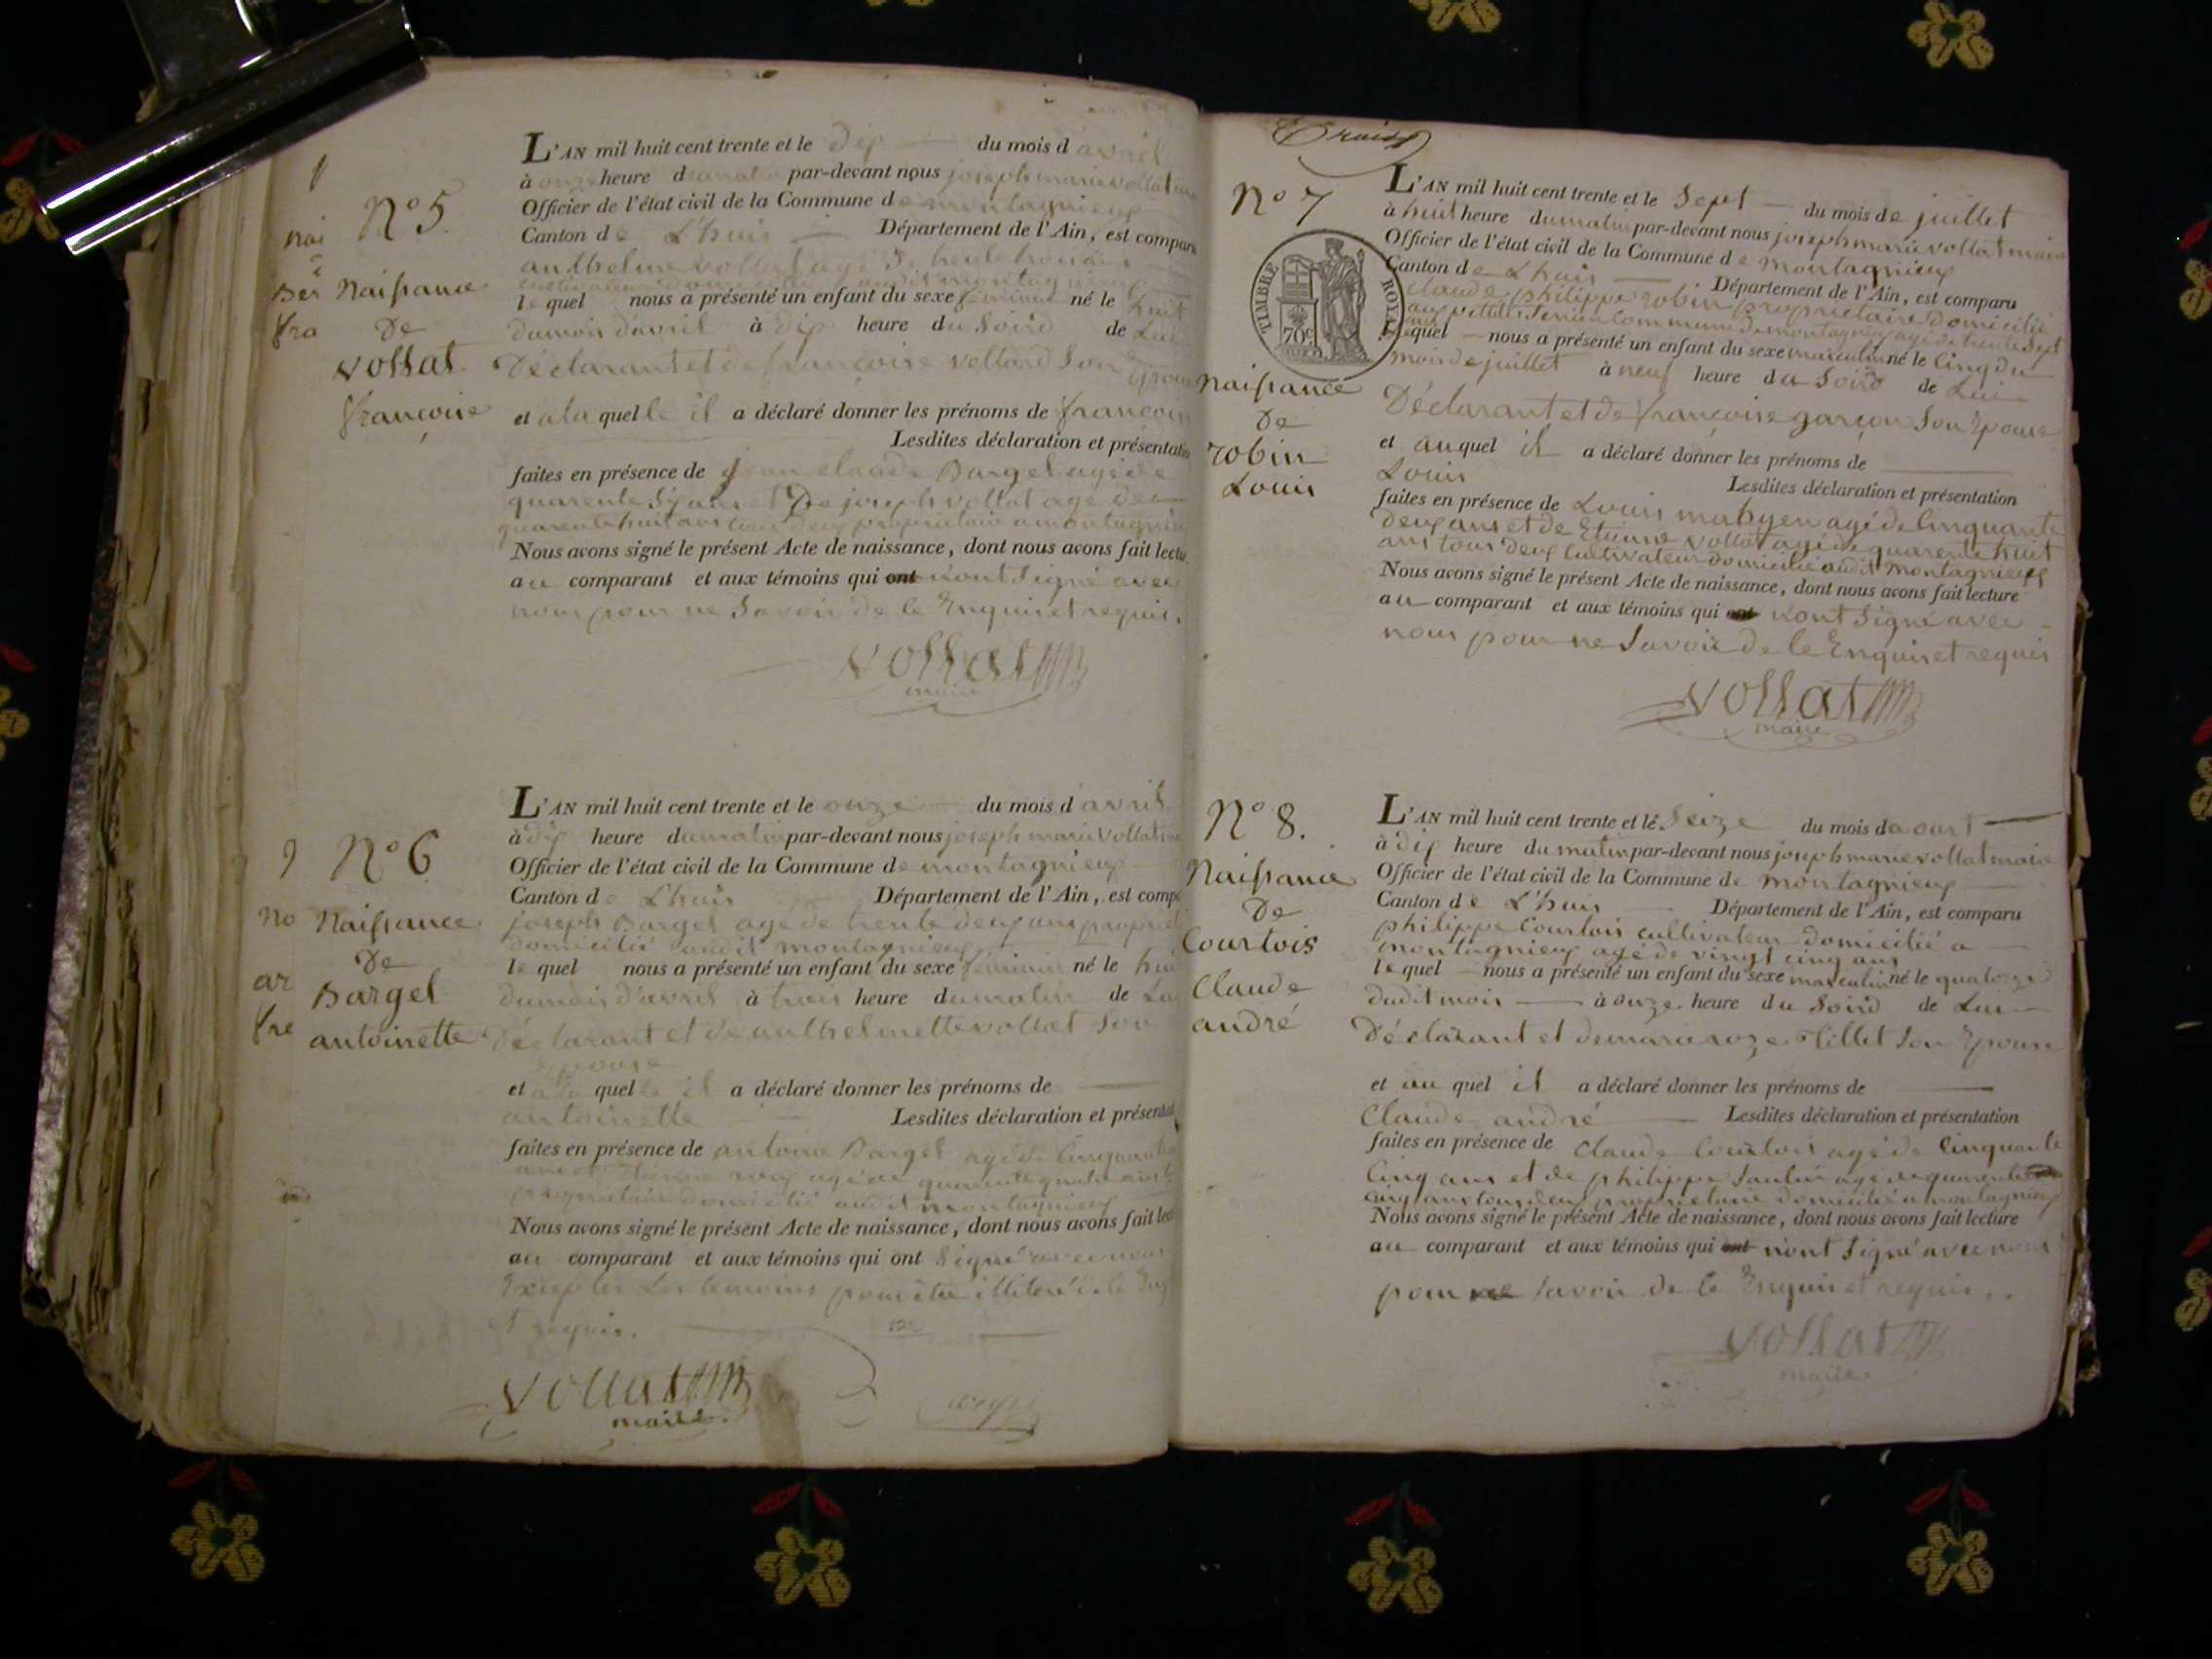 N° 5.
Naissance
De
Vollat
françoise
L'AN mil huit cent trente et le dix du mois d'avril
à onze heure du matin par-devant nous joseph marie vollat
Officier de l'état civil de la Commune de montagnieux
Canton de L'huis Département de l'Ain, est comparu
anthelme vollat agé de trente
le quel nous a présenté un enfant du sexe féminin né le huit
du mois d'avril à dix heure du Soird de Lui
Déclarant et de françoise vollard Son Epouse
et a la quelle il a déclaré donner les prénoms de françoise
Lesdites déclaration et présentation
faites en présence de jean claude Bargel agé de
quarente Six ans et De joseph vollat agé de
quarente huit ans tous deux propriétaire a montagnieux
Nous avons signé le présent Acte de naissance, dont nous avons fait lecture
au comparant et aux témoins qui ont n'ont Signé avec
nous pour ne Savoir de le Enquis et requis.
Vollat
maire
N° 6
Naissance
De
Bargel
antoinette
L'AN mil huit cent trente et le onze du mois d'avril
à dix heure du matin par-devant nous joseph marie vollat
Officier de l'état civil de la Commune de montagnieux
Canton de L'huis Département de l'Ain, est comp
joseph Bargel agé de trente deux ans
domicilié audit montagnieux
le quel nous a présenté un enfant du sexe féminin né le huit
du mois d'avril à trois heure du matin de Lui
Déclarant et de anthelmette vollat Son
Epouse
et a la quelle il a déclaré donner les prénoms de
antoinette Lesdites déclaration et présentat
faites en présence de antoine Bargel agé de Cinquante
ans et Etienne agé de quarente quatre ans
propriétaire domicilié audit montagnieux
Nous avons signé le présent Acte de naissance, dont nous avons fait lec
au comparant et aux témoins qui ont Signé avec nous
Excepter Les temoins pour être illiteré de le Enq
et requis.
Vollat
maire
N° 7
TIMBRE ROYAL
70c
Naissance
De
robin
Louis
L'AN mil huit cent trente et le Sept du mois de juillet
à huit heure du matin par-devant nous joseph marie vollat maire
Officier de l'état civil de la Commune de Montagnieux
Canton de L'huis Département de l'Ain, est comparu
claude philippe robin propriétaire Domicilié
commune de montagnieux agé de trente Sept
ans lequel nous a présenté un enfant du sexe masculin né le Cinq du
mois de juillet à neuf heure du Soird de Lui
Déclarant et de françoise garçon Son Epouse
et au quel il a déclaré donner les prénoms de
Louis Lesdites déclaration et présentation
faites en présence de Louis agé de Cinquante
deux ans et de Etienne Vollat agé de quarente huit
ans tous deux Cultivateur domicilié audit Montagnieux
Nous avons signé le présent Acte de naissance, dont nous avons fait lecture
au comparant et aux témoins qui ont n'ont Signé avec
nous pour ne Savoir de le Enquis et requis
Vollat
maire
N° 8.
Naissance
De
Courtois
Claude
andré
L'AN mil huit cent trente et le Seize du mois d'aoust
à dix heure du matin par-devant nous joseph marie vollat maire
Officier de l'état civil de la Commune de Montagnieux
Canton de L'huis Département de l'Ain, est comparu
philippe Courtois cultivateur domicilié a
Montagnieux agé de vingt cinq ans
le quel nous a présenté un enfant du sexe masculin né le quatorze
dudit mois à onze heure du Soird de Lui
Déclarant et de marie roze Tillet Son Epouse
et au quel il a déclaré donner les prénoms de
Claude andré Lesdites déclaration et présentation
faites en présence de Claude Courtois agé de Cinquante
Cinq ans et de philippe agé de quarente
cinq ans tous deux propriétaire domicilié a montagnieux
Nous avons signé le présent Acte de naissance, dont nous avons fait lecture
au comparant et aux témoins qui ont n'ont Signé avec nous
pour ne Savoir de le Enquis et requis..
Vollat
maire